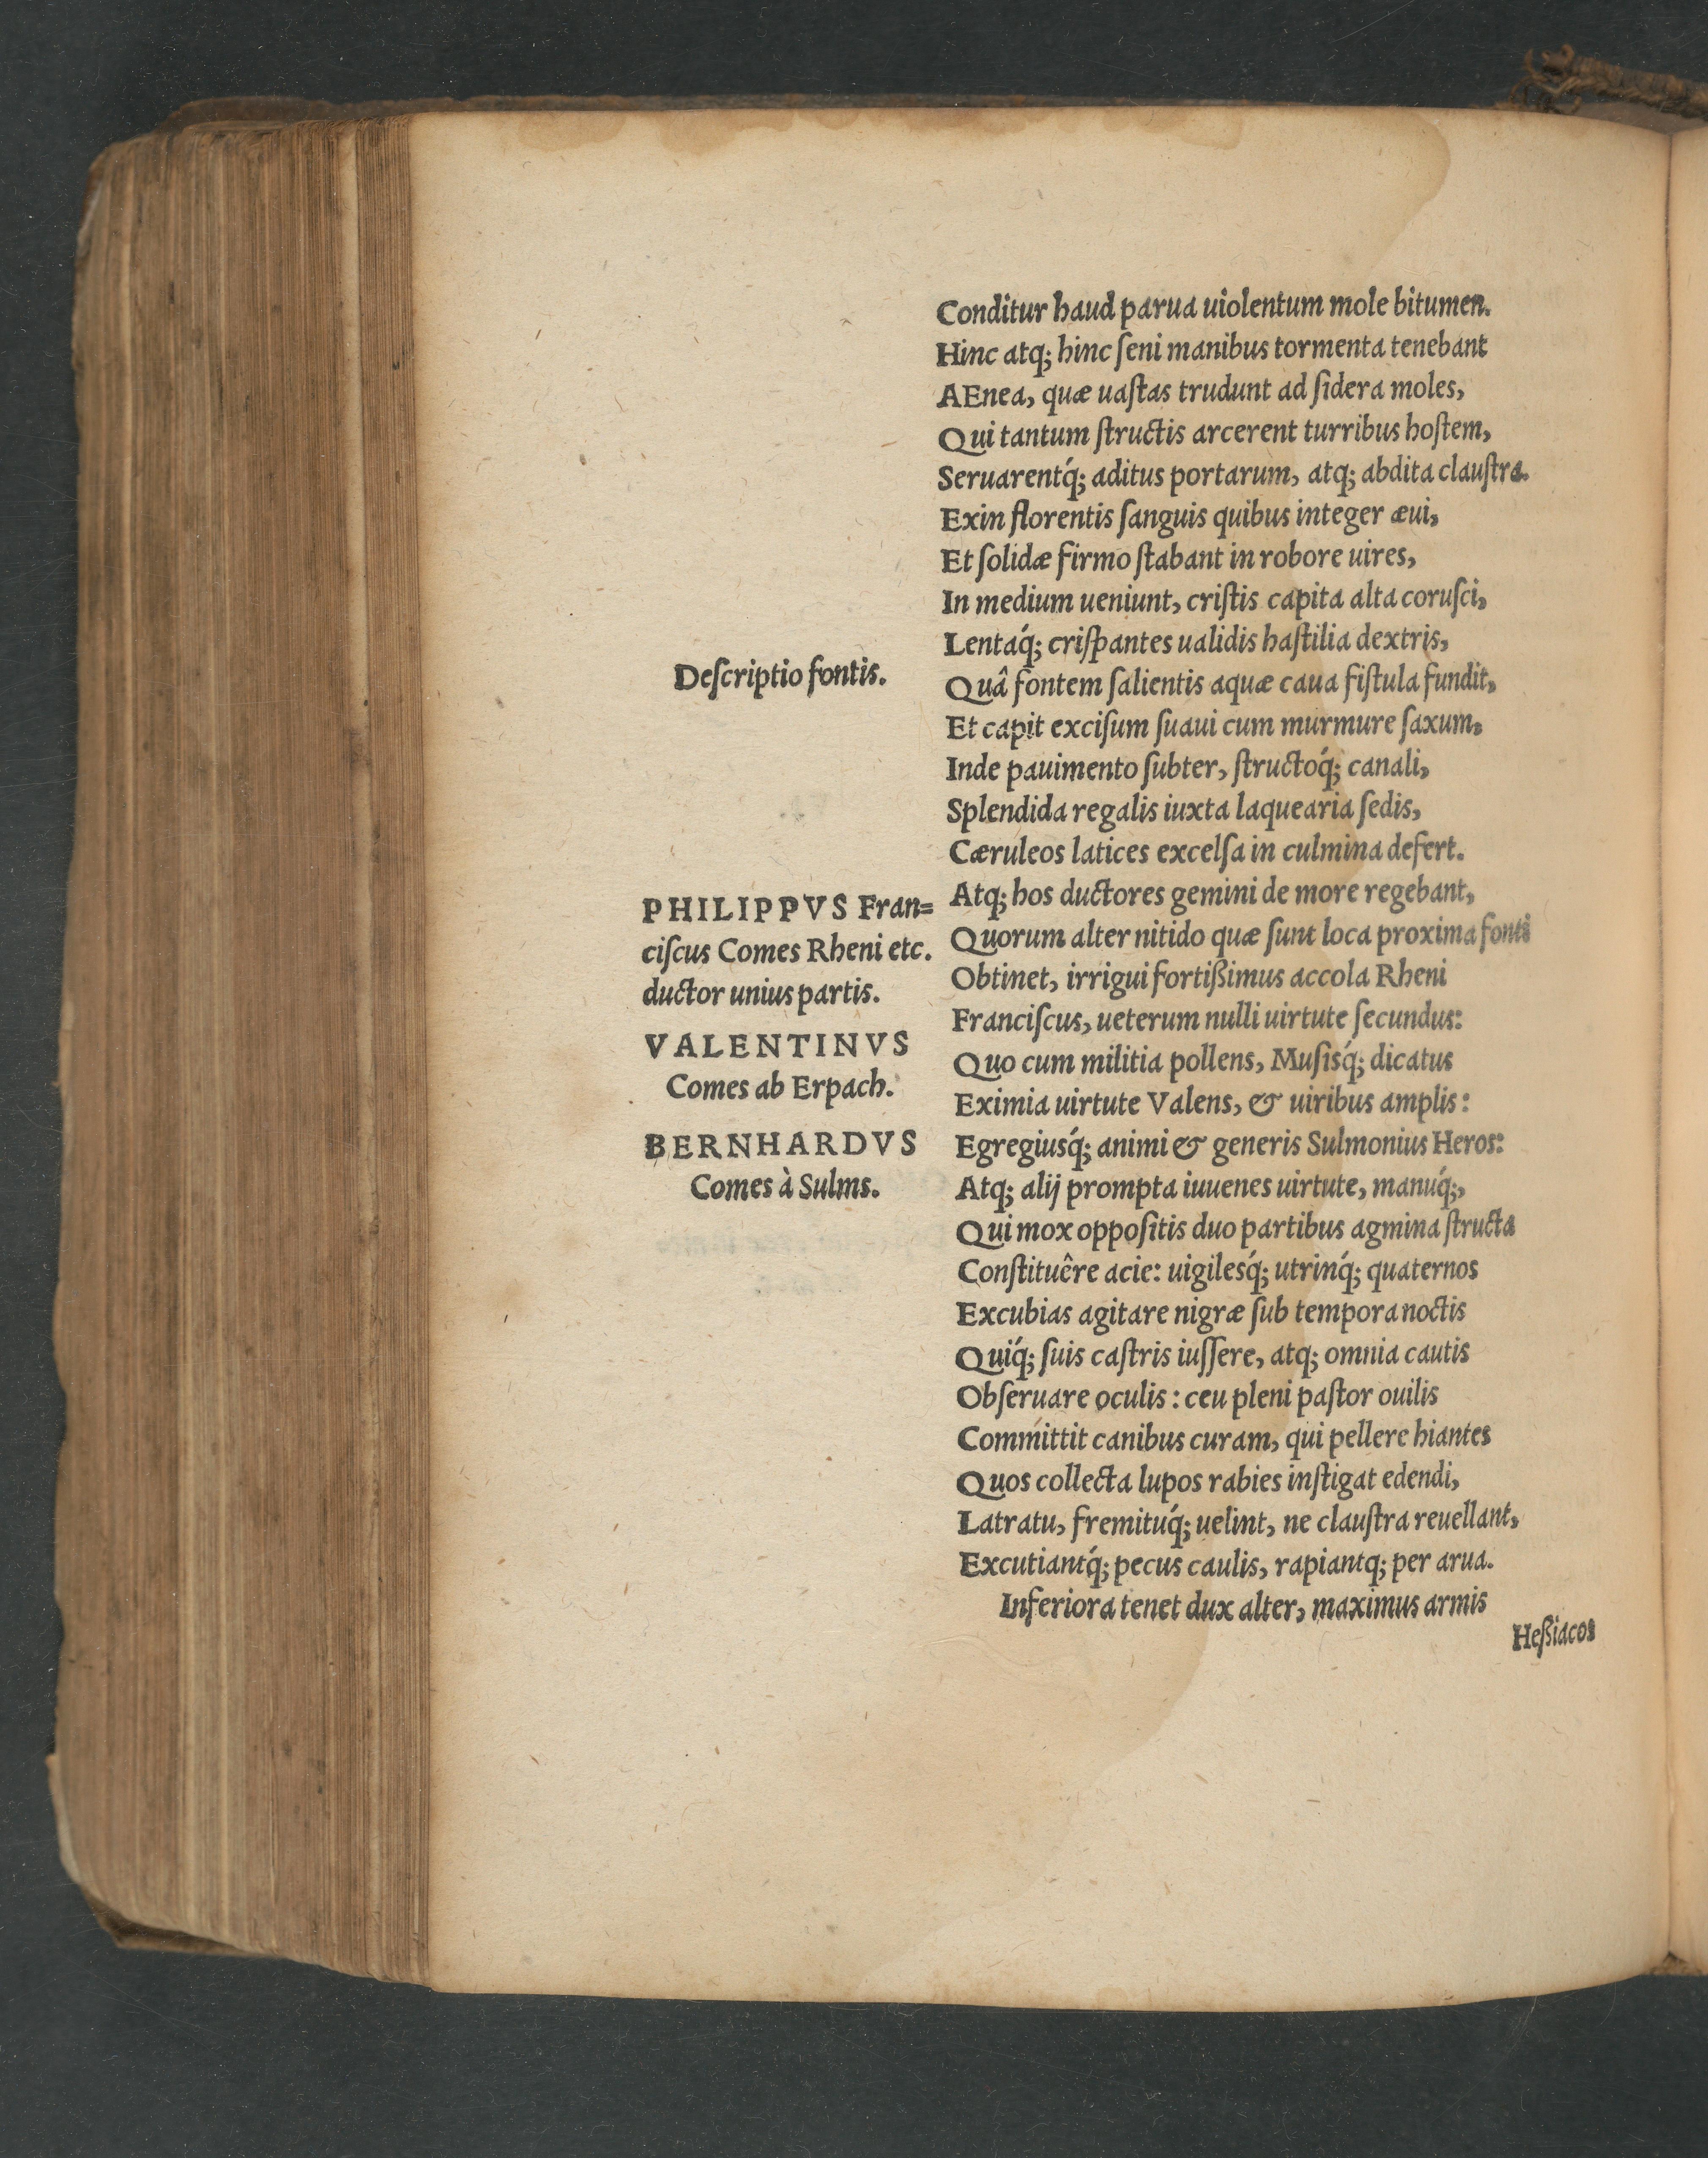 Conditur haud parua uiolentum mole bitumen.
Hinc atq; hinc ſeni manibus tormenta tenebant
AEnea, quæ uaſtas trudunt ad ſidera moles,
Qui tantum ſtructis arcerent turribus hoſtem,
Seruarentq́; aditus portarum, atq; abdita clauſtra.
Exin florentis ſanguis quibus integer æui,
Et ſolidæ firmo ſtabant in robore uires,
In medium ueniunt, criſtis capita alta coruſci,
Lentaq́; criſpantes ualidis haſtilia dextris,
Deſcriptio fontis.
Quâ fontem ſalientis aquæ caua fiſtula fundit,
Et capit exciſum ſuaui cum murmure ſaxum,
Inde pauimento ſubter, ſtructoq́; canali,
Splendida regalis iuxta laquearia ſedis,
Cæruleos latices excelſa in culmina defert.
PHILIPPVS Fran=
ciſcus Comes Rheni etc.
ductor unius partis.
VALENTINVS
Comes ab Erpach.
BERNHARDVS
Comes à Sulms.
Atq; hos ductores gemini de more regebant,
Quorum alter nitido quæ ſunt loca proxima fonti
Obtinet, irrigui fortißimus accola Rheni
Franciſcus, ueterum nulli uirtute ſecundus:
Quo cum militia pollens, Muſisq́; dicatus
Eximia uirtute Valens, & uiribus amplis:
Egregiusq́; animi & generis Sulmonius Heros:
Atq; alij prompta iuuenes uirtute, manuq́;,
Qui mox oppoſitis duo partibus agmina ſtructa
Conſtituêre acie: uigilesq́; utrinq́; quaternos
Excubias agitare nigræ ſub tempora noctis
Quiq́; ſuis caſtris iuſſere, atq; omnia cautis
Obſeruare oculis: ceu pleni paſtor ouilis
Committit canibus curam, qui pellere hiantes
Quos collecta lupos rabies inſtigat edendi,
Latratu, fremituq́; uelint, ne clauſtra reuellant,
Excutiantq́; pecus caulis, rapiantq; per arua.
Inferiora tenet dux alter, maximus armis
Heßiacos